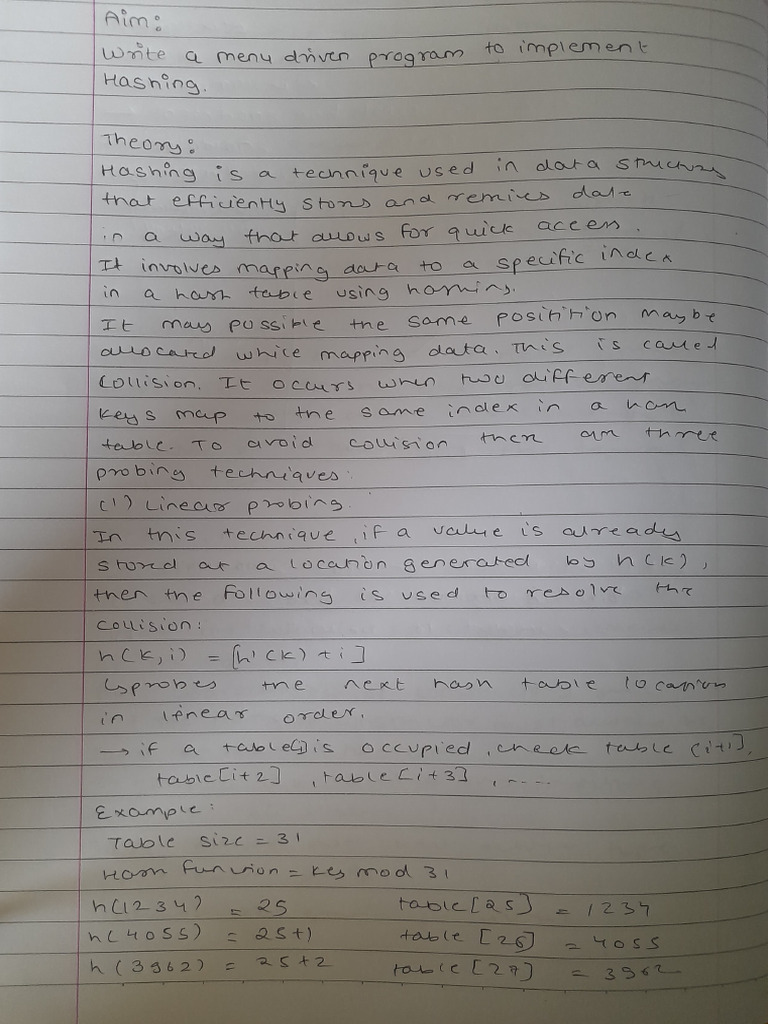 Aim:
Write a menu driven program to implement
Hashing.
Theory:
Hashing is a technique used in data structures
that efficiently stores and retrives data
in a way that allows for quick access.
It involves mapping data to a specific index
in a hash table using hashing.
It may possible the same position maybe
allocated while mapping data. This is called
Collision. It occurs when two different
keys map to the same index in a hash
table. To avoid collision there are three
probing techniques:
(1) Linear probing.
In this technique, if a value is already
stored at a location generated by h(k),
then the following is used to resolve the
collision:
h(k, i) = [h'(k) + i]
↳probes the next hash table location
in linear order.
→ if a table[i] is occupied, check table [i+1],
table[i+2], table[i+3], ....
Example:
Table size = 31
Hash function = key mod 31
h(1234) = 25 table[25] = 1234
h(4055) = 25+1 table [26] = 4055
h(3962) = 25+2 table [27] = 3962